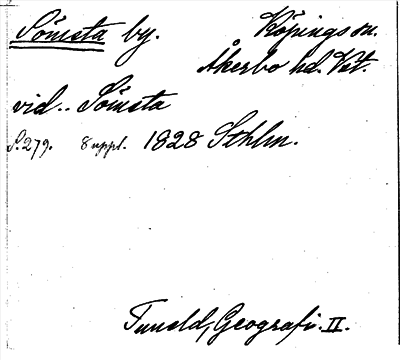 Sömsta by. Köpings sn.
Åkerbo hd. Vst.
vid.. Sömsta
S. 279. 8 uppl. 1828 Sthlm.
Tuneld, Geografi. II.